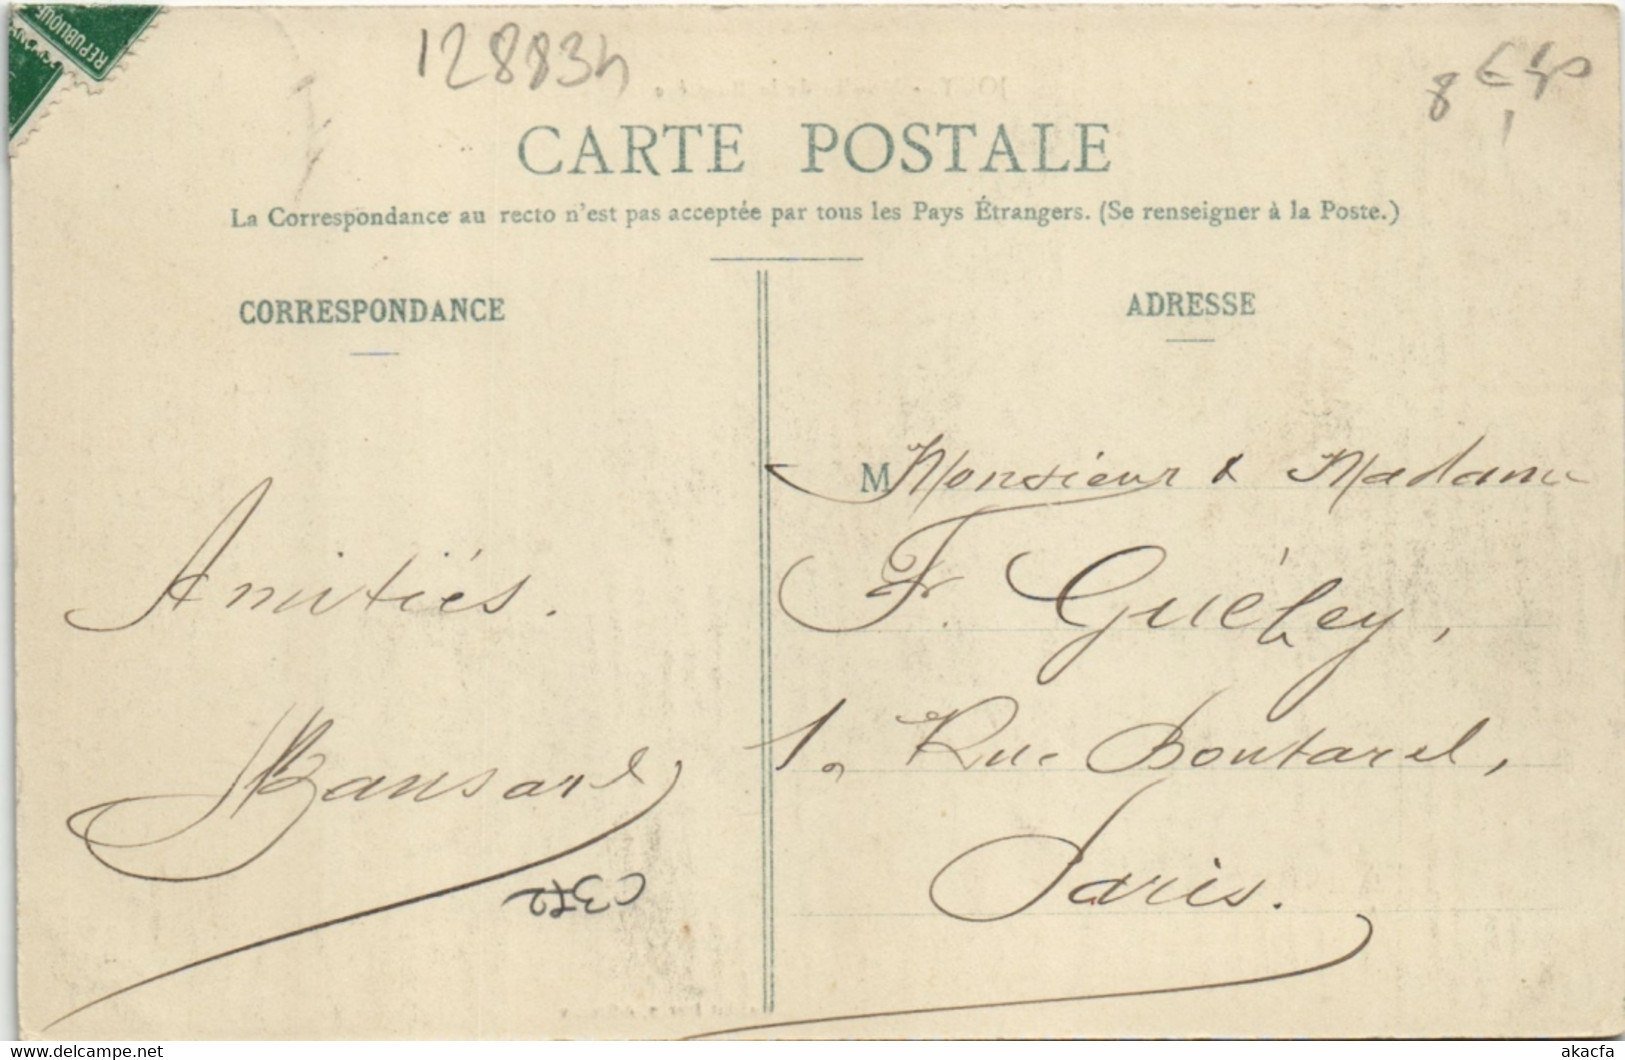 REPUBLIQUE
128834
CARTE POSTALE
La Correspondance au recto n'est pas acceptée par tous les Pays Étrangers. (Se renseigner à la Poste.)
CORRESPONDANCE
ADRESSE
Amitiés.
M Monsieur & Madame
F. Guéhey,
1, Rue Boutarel,
Paris.
C372
www.delcampe.net
akacfa